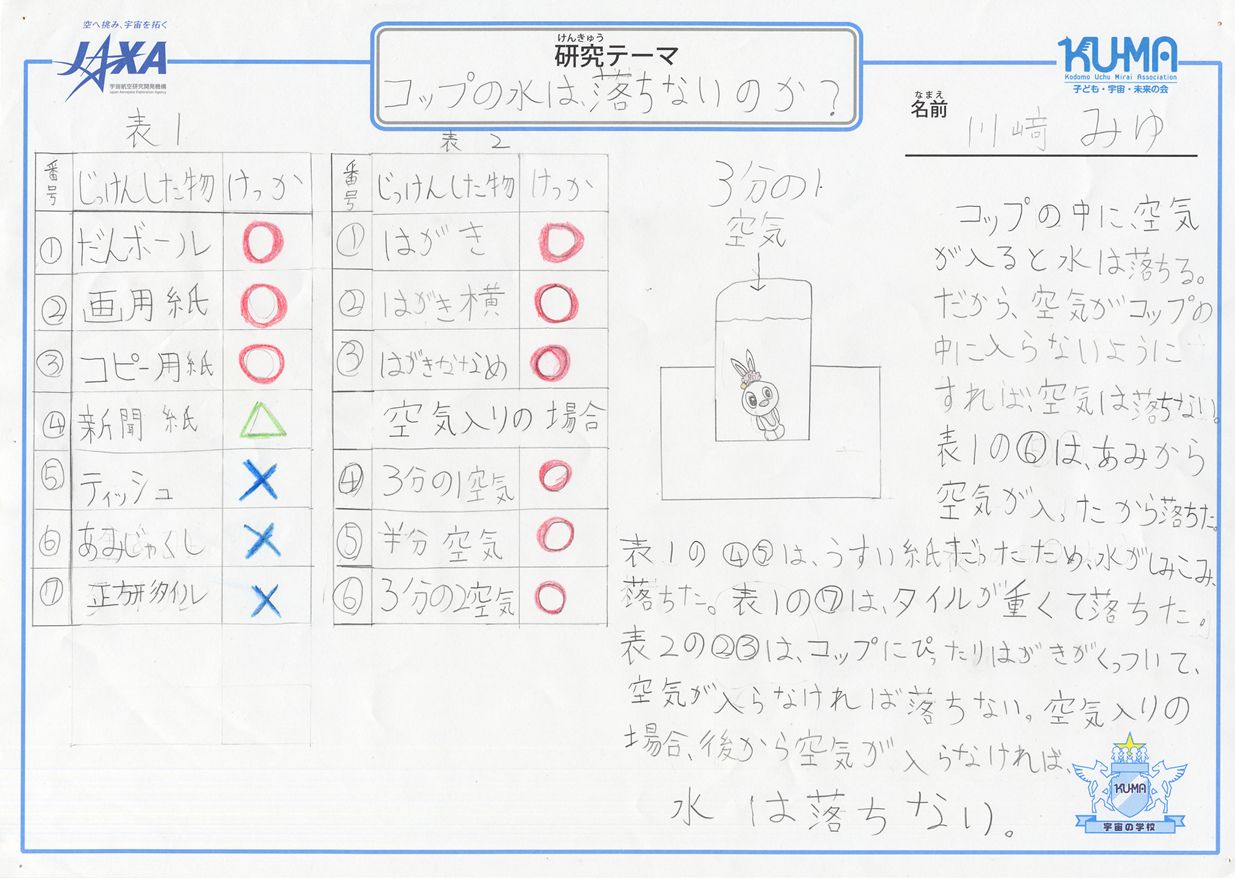 空へ挑み、宇宙を拓く
JAXA
宇宙航空研究開発機構
Japan Aerospace Exploration Agency
けんきゅう
研究テーマ
コップの水は、落ちないのか?
KU-MA
Kodomo Uchu Mirai Association
子ども・宇宙・未来の会
なまえ
名前
川﨑 みゆ
表1
番号 じっけんした物 けっか
① だんボール ○
② 画用紙 ○
③ コピー用紙 ○
④ 新聞紙 △
⑤ ティッシュ ×
⑥ あみじゃくし ×
⑦ 正方形タイル ×
表2
番号 じっけんした物 けっか
① はがき ○
② はがき横 ○
③ はがきななめ ○
空気入りの場合
④ 3分の1空気 ○
⑤ 半分空気 ○
⑥ 3分の2空気 ○
3分の1
空気
コップの中に、空気
が入ると水は落ちる。
だから、空気がコップの
中に入らないように
すれば、空気は落ちない。
表1の⑥は、あみから
空気が入ったから落ちた。
表1の④⑤は、うすい紙だったため、水がしみこみ、
落ちた。表1の⑦は、タイルが重くて落ちた。
表2の②③は、コップにぴったりはがきがくっついて、
空気が入らなければ落ちない。空気入りの
場合、後から空気が入らなければ、
水は落ちない。
KU-MA
宇宙の学校